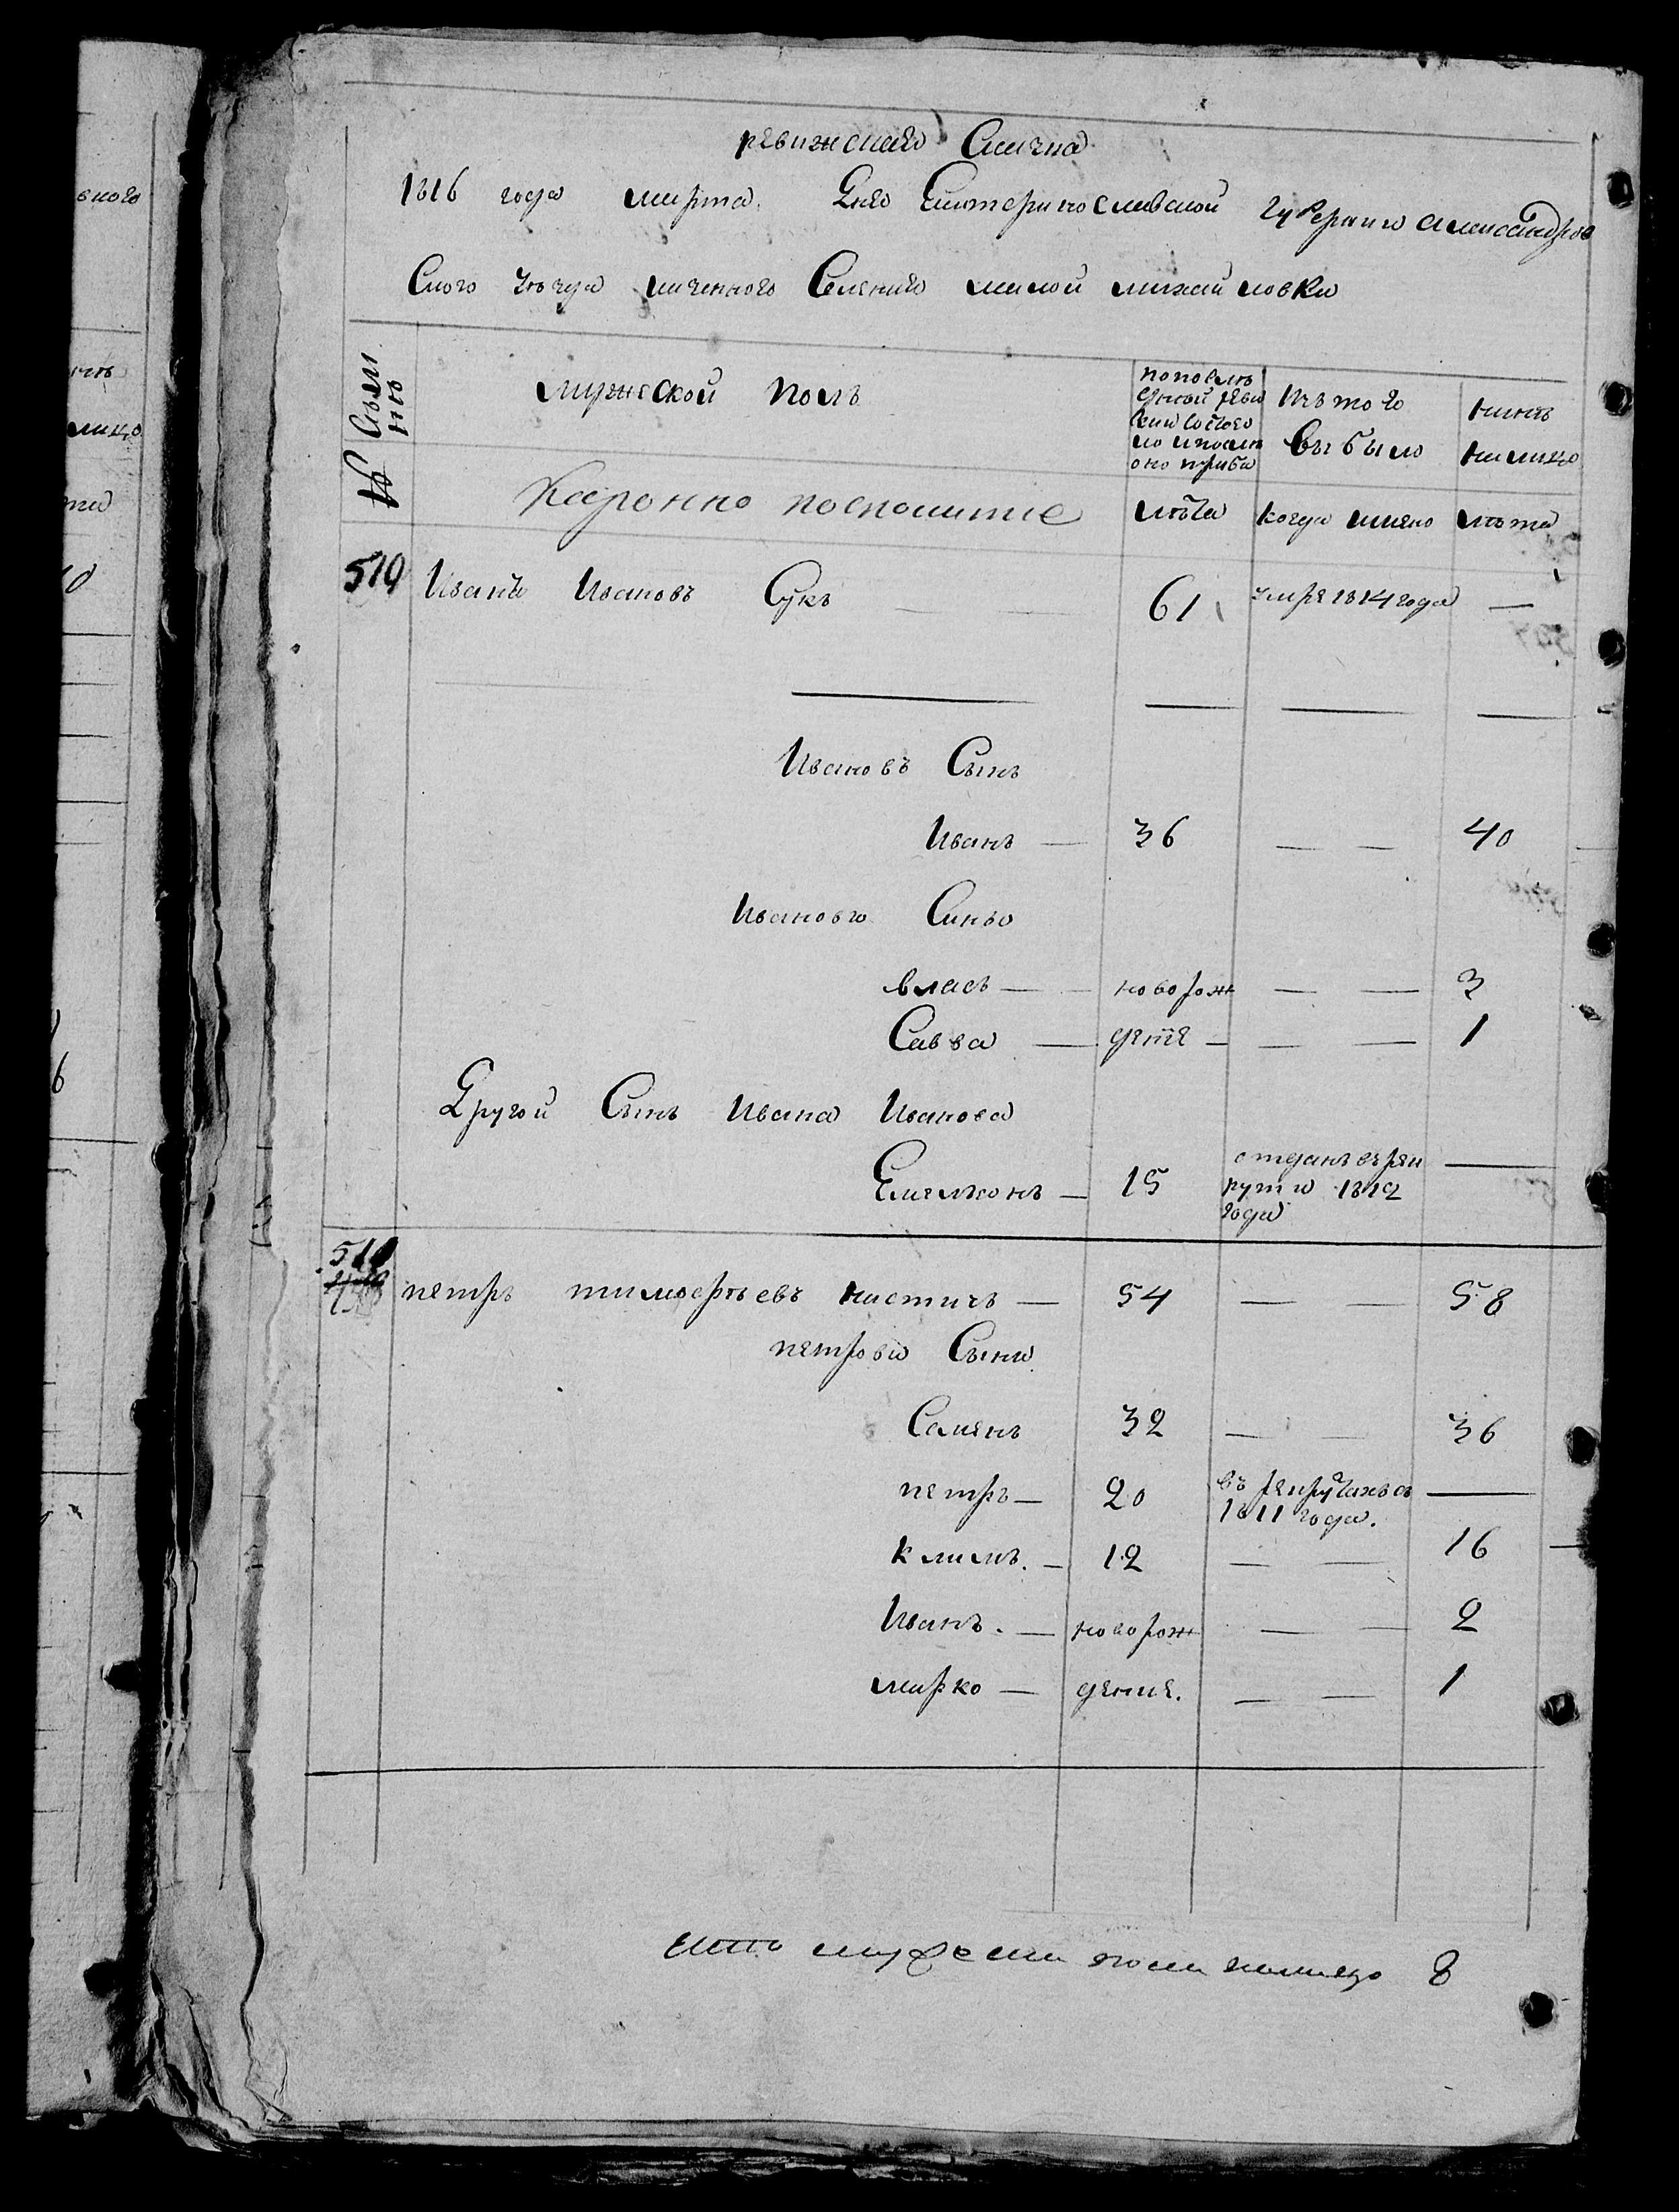 ревижская Скаска
1816 года марта Дня Екатеринославской губернии александров
Ского уезда казенного Селения малой михайловки
№ Семи
ит
мужеской полъ
попослед
дней реви
зии Состоя
ло и после
оно прибы
Изъ того
выбыло
ныне
на лицо
Коронно поспо­литые
лета
когда имяно
лета
519 Иванъ Ивановъ Сукъ — — 61 умре 1814 года —
Ивановъ Сынъ
Иванъ — 36 — — 40
Ивановы Сины
власъ — — новорож — — 3
Савва — дение — — — 1
Другой Сынъ Ивана Иванова
Емельянъ — 15 отданъ въ рек —
руты 1812
года
510
петръ тимофеевъ — 54 — — 58
петровы Сыны
Семенъ 32 — — 36
петръ — 20 въ рекрутахъ съ —
1811 года.
климъ. — 12 — — 16
Иванъ. — новорож — — 2
марко — дение. — — 1
Итого мужеска пола налицо 8